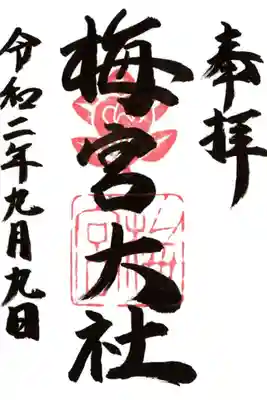 奉拝
梅宮大社
令和二年九月九日